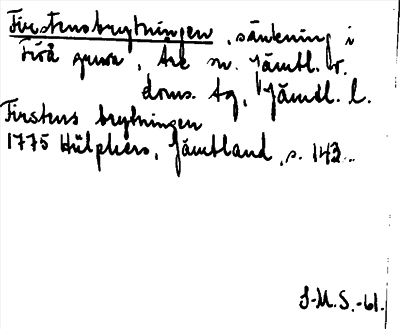 Firstensbrytningen, sänkning i
Fröå gruva, Åre sn. Jämtl. v.
doms. tg, Jämtl. l.
Firstens brytningen
1775 Hülphers, Jämtland, s. 143.
S-M.S.-61.